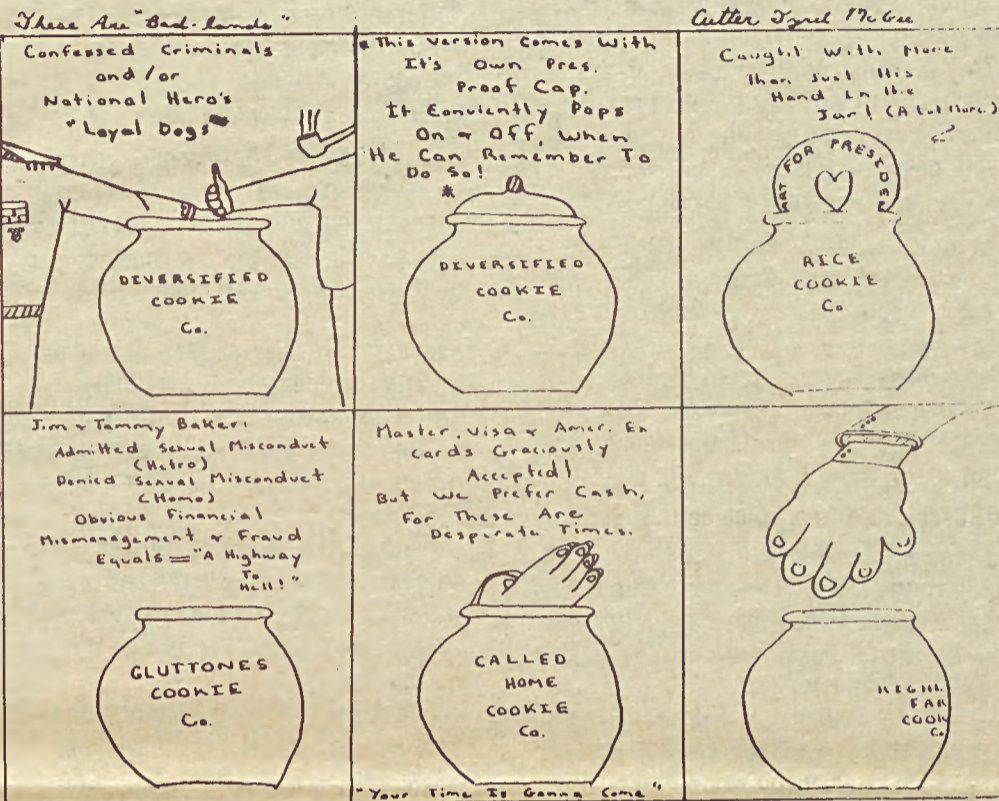 These Are "Bad-lands"
Cutter Tyrel McGee
Confessed Criminals
and/or
National Hero's
"Loyal Dogs"
DIVERSIFIED
COOKIE
Co.
*This Version Comes With
It's Own Pres.
Proof Cap.
It Conviently Pops
On & Off, When
He Can Remember To
Do So!
*
DIVERSIFIED
COOKIE
Co.
Caught With More
Than Just His
Hand In the
Jar! (A Lot More.)
ART FOR PRESIDENT
RICE
COOKIE
Co
Jim & Tammy Baker:
Admitted Sexual Misconduct
(Hetro)
Denied Sexual Misconduct
(Homo)
Obvious Financial
Mismanagement & Fraud
Equals = "A Highway
To
Hell!"
GLUTTONES
COOKIE
Co.
Master, Visa & Amer. Ex
Cards Graciously
Accepted!
But We Prefer Cash,
For These Are
Desperate Times.
CALLED
HOME
COOKIE
Co.
"Your Time Is Gonna Come"
FAR
COOK
Co.